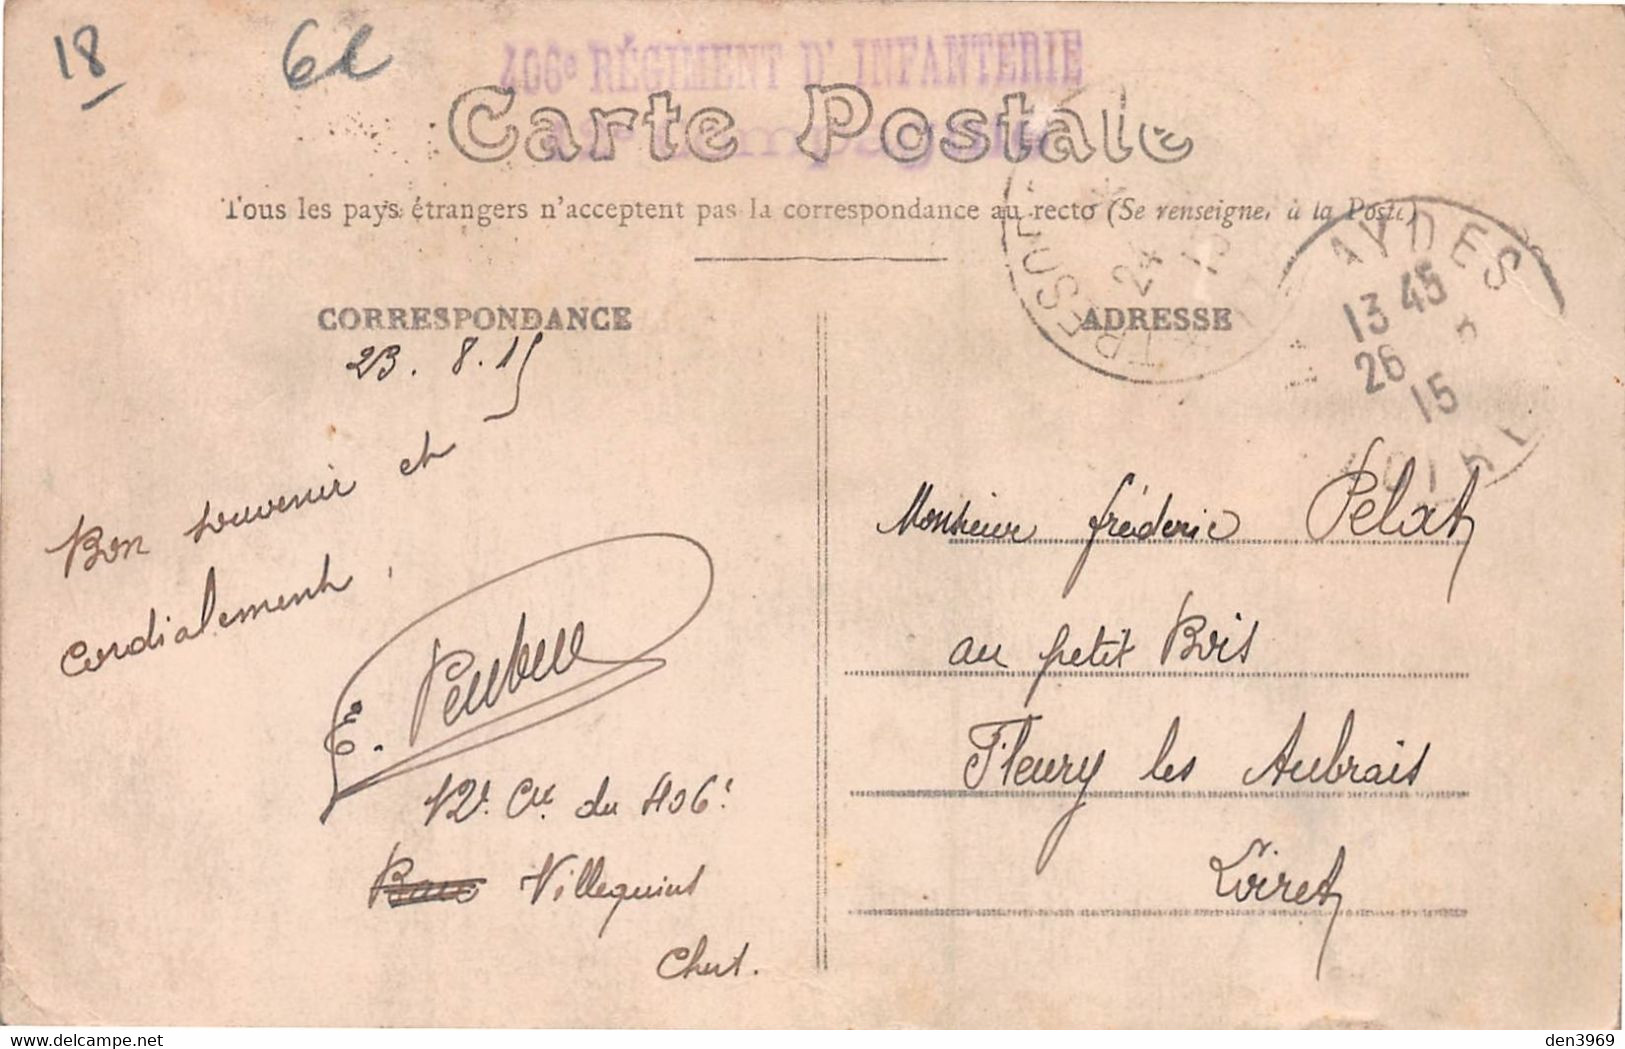 18
6e
406e RÉGIMENT D'INFANTERIE
Carte Postale
Tous les pays étrangers n'acceptent pas la correspondance au recto (Se renseigner à la Poste)
CORRESPONDANCE
ADRESSE
AYDES
13 45
26
15
24
23.8.15
Bon souvenir et
cordialement.
E.
12e Cie du 406e
Villequiers
Cher.
Monsieur fréderic Pelat
au petit Bois
Fleury les Aubrais
Loiret
den3969